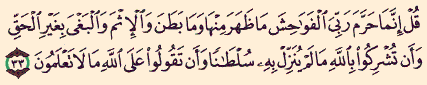 قُلْ إِنَّمَا حَرَّمَ رَبِّىَ ٱلْفَوَٰحِشَ مَا ظَهَرَ مِنْهَا وَمَا بَطَنَ وَٱلْإِثْمَ وَٱلْبَغْىَ بِغَيْرِ ٱلْحَقِّ
وَأَن تُشْرِكُوا۟ بِٱللَّهِ مَا لَمْ يُنَزِّلْ بِهِۦ سُلْطَٰنًا وَأَن تَقُولُوا۟ عَلَى ٱللَّهِ مَا لَا تَعْلَمُونَ ٣٣